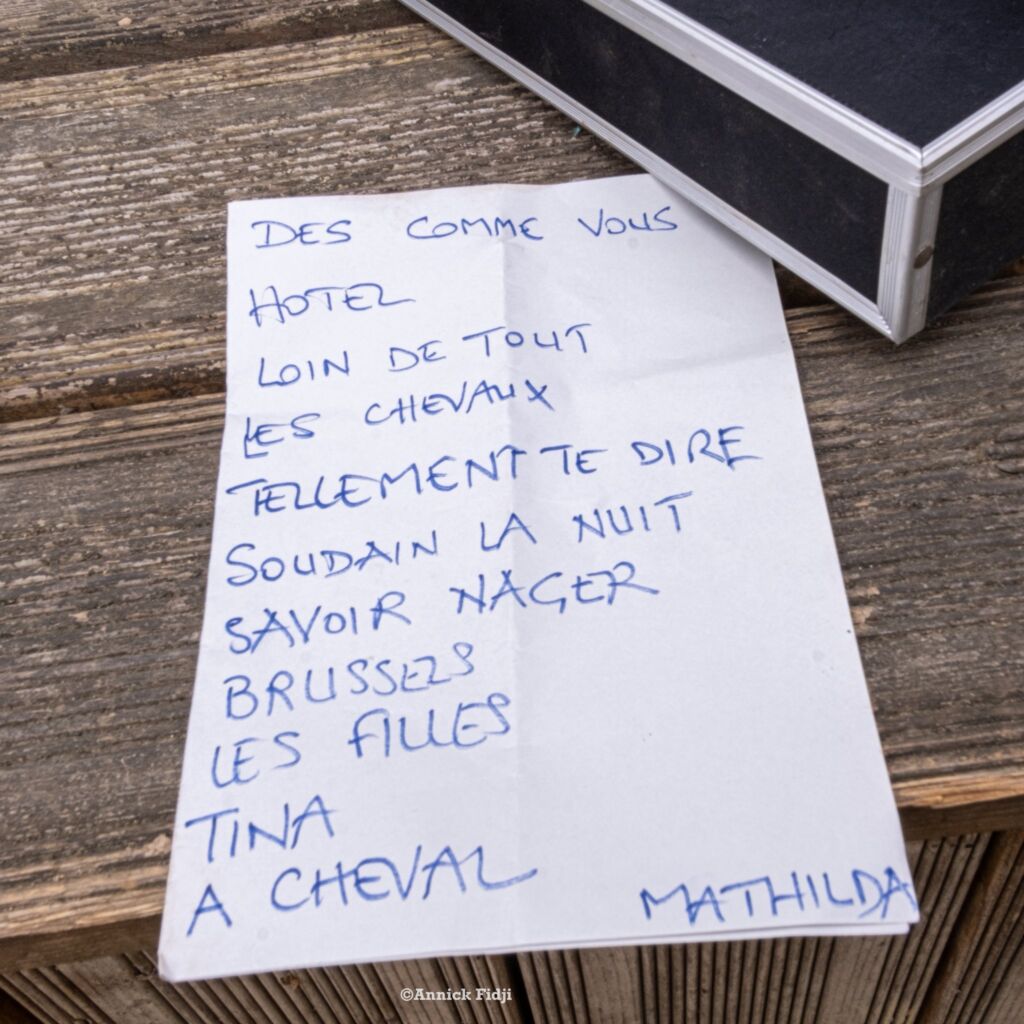 DES COMME VOUS
HOTEL
LOIN DE TOUT
LES CHEVAUX
TELLEMENT TE DIRE
SOUDAIN LA NUIT
SAVOIR NAGER
BRUSSELS
LES FILLES
TINA
A CHEVAL
MATHILDA
©Annick Fidji